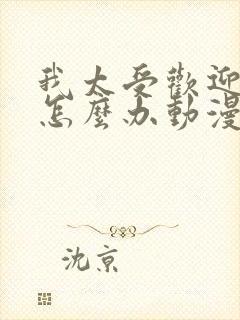 我太受歡迎
怎麼办動漫
沈京